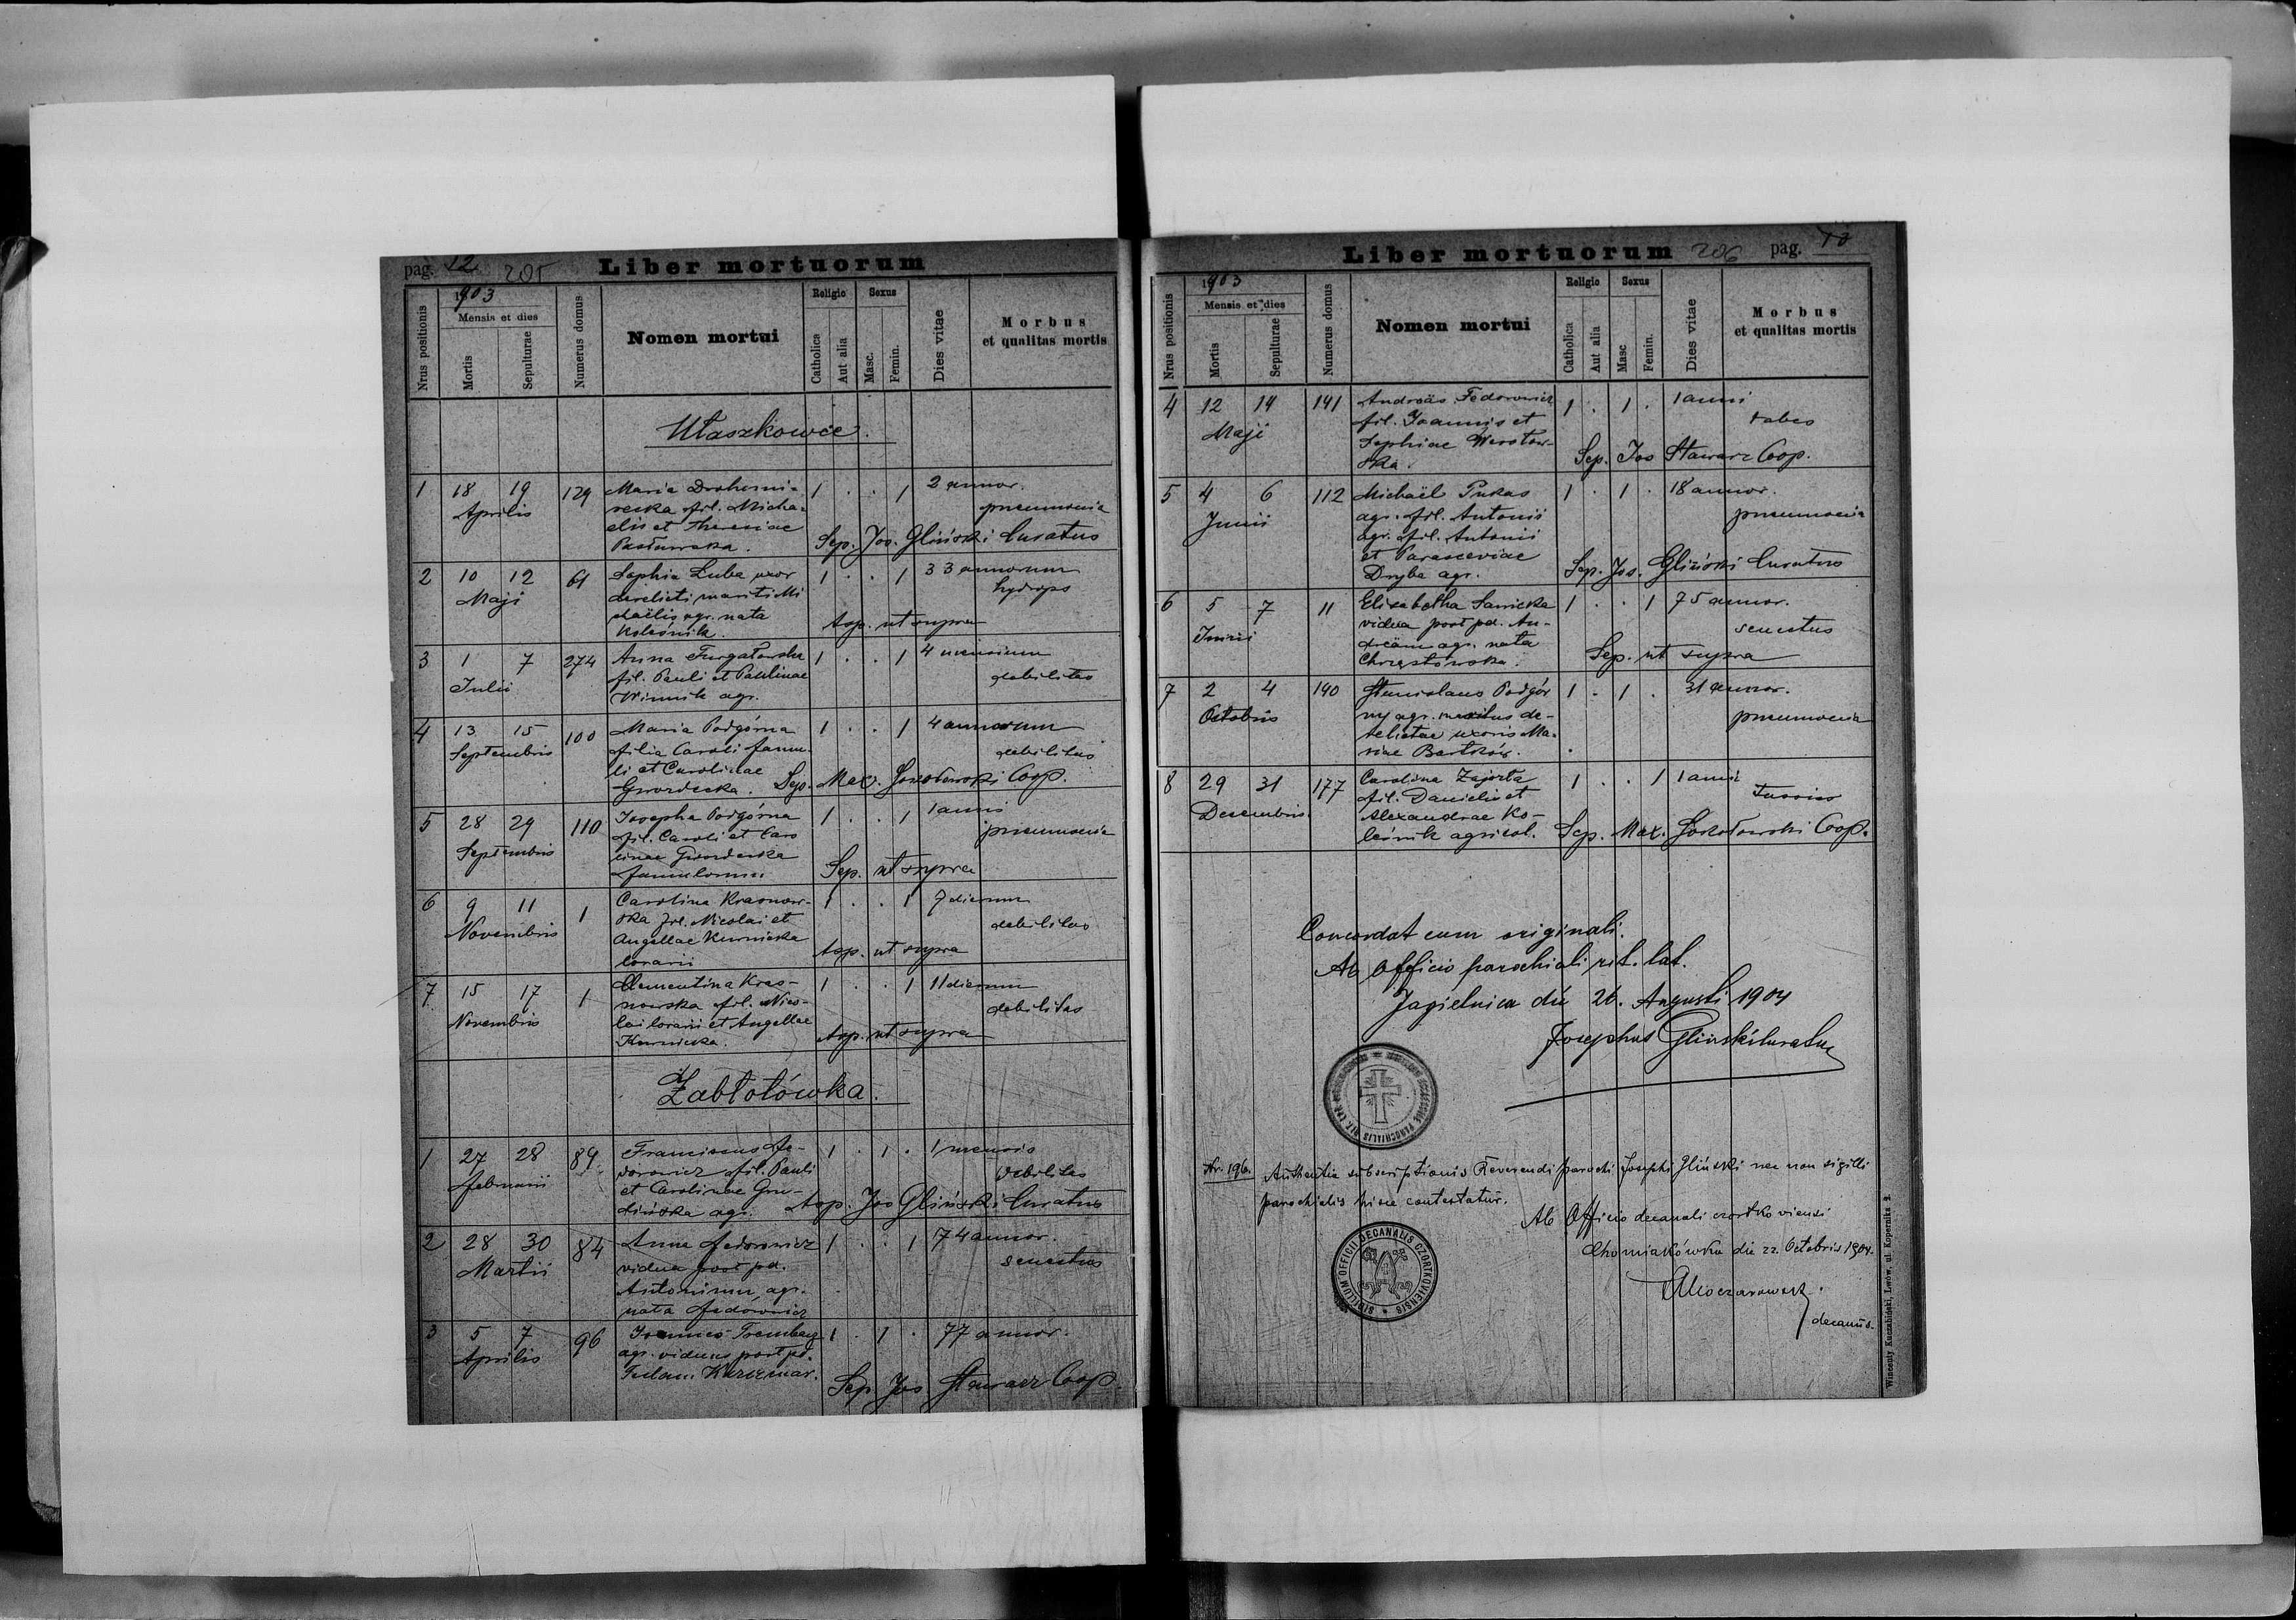 pag. 12 205 Liber mortuorum
Nrus positionis
1903
Mensis et dies
Mortis
Sepulturae
Numerus domus
Nomen mortui
Religio
Catholica
Aut alia
Sexus
Masc.
Femin.
Dies vitae
Morbus
et qualitas mortis
Ułaszkowce.
1 18 19 129 Maria 1 . . 1 2 annor.
Aprilis fil. Micha- pneumonia
elis et Theresiae
Sep. Jos. Gliński Curatus
2 10 12 61 Sophia Luba uxor 1 . . 1 33 annorum
Maji derelicti mariti Mi hydrops
chaëlis agr. nata
Koleśnik. Sep. ut supra
3 1 7 274 Anna 1 . . 1 4 mensium
Julii fil. Pauli et Paulinae debilitas
Winnik agr.
4 13 15 100 Maria Podgórna 1 . . 1 4 annorum
Septembris filia Caroli famu- debilitas
li et Carolinae
Gwozdecka. Sep. Max. Sokołowski Coop.
5 28 29 110 Josepha Podgórna 1 . . 1 1 anni
Septembris fil. Caroli et Caro pneumonia
linae Gwozdecka
famulorum Sep. ut supra
6 9 11 1 Carolina Krasnow- 1 . . 1 7 dierum
Novembris ska fil. Nicolai et debilitas
Angellae Kurnicka
lorarii Sep. ut supra
7 15 17 1 Clementina Kras- 1 . . 1 11 dierum
Novembris nowska fil. Nico- debilitas
lai lorarii et Angellae
Kurnicka. Sep. ut supra
Zabłotówka.
1 27 28 89 Franciscus Fe- 1 . 1 . 1 mensis
Februarii dorowicz fil. Pauli debilitas
et Carolinae
agr. Sep. Jos Gliński Curatus
2 28 30 84 Anna Fedorowicz 1 . . 1 74 annor.
Martii vidua post pd. senectus
Antonium agr.
nata Fedorowicz
3 5 7 96 Joannes 1 . 1 . 77 annor.
Aprilis agr. viduus post pd.
Sep Jos Stawarz Coop.
Liber mortuorum 206 pag. 13
Nrus positionis
1903
Mensis et dies
Mortis
Sepulturae
Numerus domus
Nomen mortui
Religio
Catholica
Aut alia
Sexus
Masc
Femin.
Dies vitae
Morbus
et qualitas mortis
4 12 14 141 Andreäs Fedorowicz 1 . 1 . 1 anni
Maji fil. Joannis et tabes
Sophiae
ska. Sep. Jos Stawarz Coop.
5 4 6 112 Michaël Pukas 1 . 1 . 18 annor.
Junii agr. fil. Antonii pneumonia
agr. fil. Antonii
et Parasceviae
Dryba agr. Sep. Jos. Gliński Curatus
6 5 7 11 Elisabetha Sawicka 1 . . 1 75 annor.
Junii vidua post pd. An- senectus
dreäm agr. nata
Chrząstowska. Sep. ut supra
7 2 4 140 Stanislaus Podgór 1 . 1 . 31 annor.
Octobris ny agr. maritus de- pneumonia
relictae uxoris Ma-
riae Bartków.
8 29 31 177 Carolina 1 . . 1 1 anni
Decembris fil. Danielis et Tussis
Alexandrae Ko-
leśnik agricol. Sep. Max. Sokołowski Coop.
Concordat cum originali.
Ab officio parochiali rit. lat.
Jagielnica die 26. Augusti 1904
Josephus Gliński Curatus
Nr. 196. Authentia subscriptionis Reverendi parochi Josephi Gliński nec non sigilli
parochialis hisce contestatur.
Ab Officio decanali czortkoviensi
Chomiakówka die 22. Octobris 1904.
decanus.
SIGILLUM OFFICII DECANALIS CZORTKOVIENSIS
Wincenty Kuczabiński, Lwów, ul. Kopernika 9.